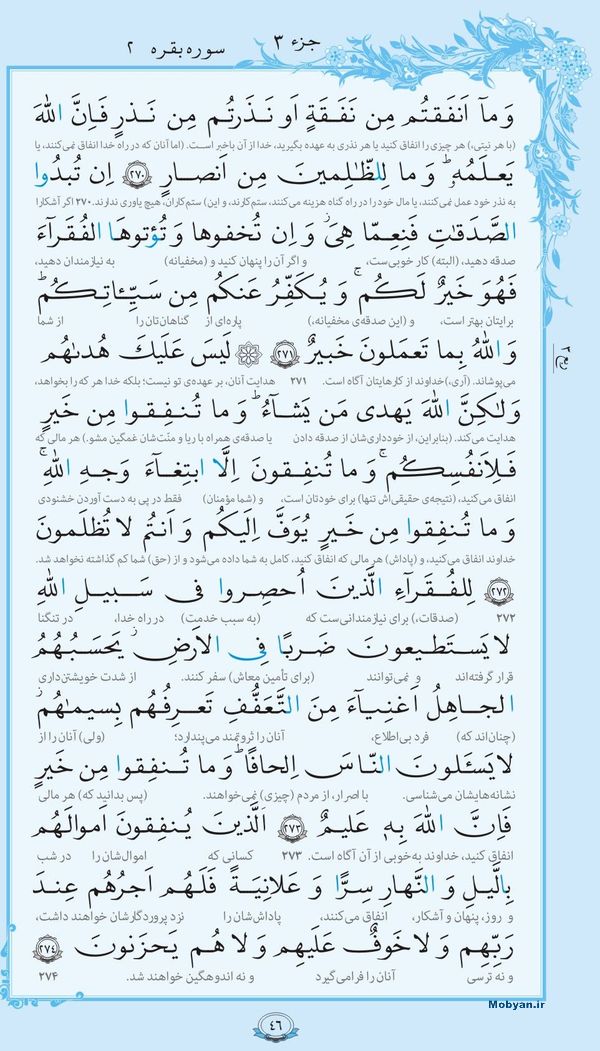 جزء ۳
سوره بقره ۲
وَ مآ اَنفَقتُم مِن نَفَقَةٍ اَو نَذَرتُم مِن نَذرٍ فَاِنَّ اللهَ
(با هر نیتی،) هر چیزی را انفاق کنید یا هر نذری به عهده بگیرید، خدا از آن باخبر است. (اما آنان که در راه خدا انفاق نمی‌کنند، یا
یَعلَمُهُۥ وَ ما لِلظّٰلِمینَ مِن اَنصارٍ ﴿۲۷۰﴾ اِن تُبدُوا
به نذر خود عمل نمی‌کنند، یا مال خود را در راه گناه هزینه می‌کنند، ستم کارند، و این) ستم‌کاران، هیچ یاوری ندارند. ۲۷۰ اگر آشکارا
الصَّدَقٰتِ فَنِعِمّا هِیَ وَ اِن تُخفوها وَ تُؤتوهَا الفُقَرآءَ
صدقه دهید، (البته) کار خوبی‌ست، و اگر آن را پنهان کنید و (مخفیانه) به نیازمندان دهید،
فَهُوَ خَیرٌ لَکُم وَ یُکَفِّرُ عَنکُم مِن سَیِّـٔاتِکُم
برایتان بهتر است، و (این صدقه‌ی مخفیانه،) پاره‌ای از گناهان‌تان را از شما
وَ اللهُ بِما تَعمَلونَ خَبیرٌ ﴿۲۷۱﴾ لَیسَ عَلَیكَ هُدىٰهُم
می‌پوشاند. (آری،) خداوند از کارهایتان آگاه است. ۲۷۱ هدایت آنان، بر عهده‌ی تو نیست؛ بلکه خدا هر که را بخواهد،
وَلٰکِنَّ اللهَ یَهدی مَن یَشآءُ وَ ما تُنفِقوا مِن خَیرٍ
هدایت می‌کند. (بنابراین، از خودداری‌شان از صدقه دادن یا صدقه‌ی همراه با ریا و منّت‌شان غمگین مشو.) هر مالی که
فَلِاَنفُسِکُم وَ ما تُنفِقونَ اِلَّا ابتِغآءَ وَجهِ اللهِ
انفاق می‌کنید، (نتیجه‌ی حقیقی‌اش تنها) برای خودتان است، و (شما مؤمنان) فقط در پی به دست آوردن خشنودی
وَ ما تُنفِقوا مِن خَیرٍ یُوَفَّ اِلَیکُم وَ اَنتُم لا تُظلَمونَ
خداوند انفاق می‌کنید، و (پاداش) هر مالی که انفاق کنید، کامل به شما داده می‌شود و از (حق) شما کم گذاشته نخواهد شد.
﴿۲۷۲﴾ لِلفُقَرآءِ الَّذینَ اُحصِروا فی سَبیلِ اللهِ
۲۷۲ (صدقات،) برای نیازمندانی‌ست که (به سبب خدمت) در راه خدا، در تنگنا
لا یَستَطیعونَ ضَربًا فِی الاَرضِ یَحسَبُهُمُ
قرار گرفته‌اند و نمی‌توانند (برای تأمین معاش) سفر کنند. از شدت خویشتن‌داری
الجاهِلُ اَغنِیآءَ مِنَ التَّعَفُّفِ تَعرِفُهُم بِسیمٰهُم
(چنان‌اند که) فرد بی‌اطلاع، آنان را ثروتمند می‌پندارد؛ (ولی) آنان را از
لا یَسـَٔلونَ النّاسَ اِلحافًا وَ ما تُنفِقوا مِن خَیرٍ
نشانه‌هایشان می‌شناسی. با اصرار، از مردم (چیزی) نمی‌خواهند. (پس بدانید که) هر مالی
فَاِنَّ اللهَ بِهٖ عَلیمٌ ﴿۲۷۳﴾ اَلَّذینَ یُنفِقونَ اَموالَهُم
انفاق کنید، خداوند به‌خوبی از آن آگاه است. ۲۷۳ کسانی که اموال‌شان را در شب
بِالَّیلِ وَ النَّهارِ سِرًّا وَ عَلانِیَةً فَلَهُم اَجرُهُم عِندَ
و روز، پنهان و آشکار، انفاق می‌کنند، پاداش‌شان را نزد پروردگارشان خواهند داشت،
رَبِّهِم وَ لا خَوفٌ عَلَیهِم وَ لا هُم یَحزَنونَ ﴿۲۷۴﴾
و نه ترسی آنان را فرامی‌گیرد و نه اندوهگین خواهند شد. ۲۷۴
Mobyan.ir
۴۶